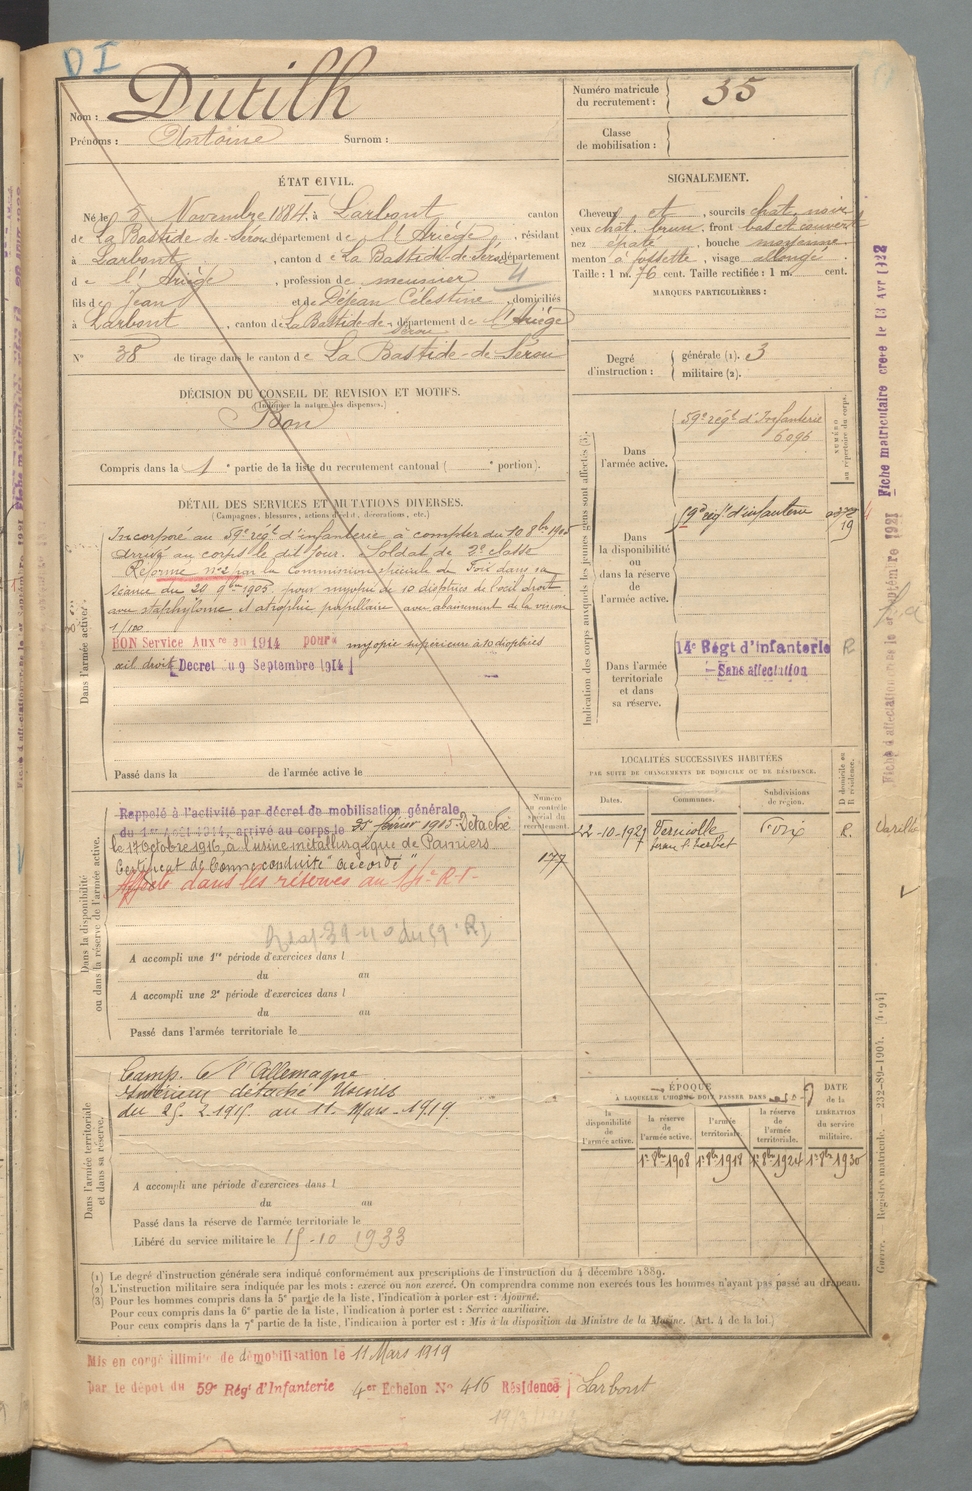 D I
Nom : Dutilh
Prénoms : Antoine Surnom :
Numéro matricule du recrutement : 35
Classe de mobilisation :
ÉTAT CIVIL.
Né le 5 Novembre 1884, à Larbont canton
de La Bastide-de-Sérou département de l'Ariège, résidant
à Larbont, canton de La Bastide-de-Sérou département
de l'Ariège, profession de meunier 4
fils de Jean et de Déjean Célestine, domiciliés
à Larbont, canton de La Bastide-de-Sérou département de l'Ariège
N° 38 de tirage dans le canton de La Bastide-de-Sérou
SIGNALEMENT.
Cheveux et, sourcils chat. noir
yeux chat. brun, front bas et couvert
nez épaté, bouche moyenne
menton à fossette, visage allongé
Taille : 1 m. 76 cent. Taille rectifiée : 1 m. cent.
MARQUES PARTICULIÈRES :
Degré d'instruction : générale (1). 3
militaire (2).
DÉCISION DU CONSEIL DE REVISION ET MOTIFS.
(Indiquer la nature des dispenses.)
Bon
Compris dans la 1e partie de la liste du recrutement cantonal ( e portion).
DÉTAIL DES SERVICES ET MUTATIONS DIVERSES.
(Campagnes, blessures, actions d'éclat, décorations, etc.)
Dans l'armée active.
Incorporé au 59e régt d'infanterie à compter du 10 8bre 1905
Arrivé au corps le dit jour. Soldat de 2e classe
Réformé n°2 par la Commission spéciale de Foix dans sa
séance du 20 9bre 1905 pour myopie de 10 dioptries de l'œil droit
avec staphylome et atrophie papillaire avec abaissement de la vision
1/100
BON Service Auxre en 1914 pour myopie supérieure à 10 dioptries
œil droit Decret du 9 Septembre 1914
Passé dans la de l'armée active le
Indication des corps auxquels les jeunes gens sont affectés (3).
NUMÉRO au répertoire du corps.
Dans l'armée active. 59e régt d'Infanterie
6096
Dans la disponibilité ou dans la réserve de l'armée active. 59e régt d'infanterie
19
Dans l'armée territoriale et dans sa réserve. 14e Régt d'Infanterie R
Sans affectation
Dans la disponibilité ou dans la réserve de l'armée active.
Rappelé à l'activité par décret de mobilisation générale
du 1er Août 1914, arrivé au corps le 25 février 1915 Détaché
le 17 Octobre 1916, à l'usine métallurgique de Pamiers
Certificat de bonne conduite "accordé"
Affecté dans les réserves au 14e R.I.
Numéro au contrôle spécial du recrutement.
177
A accompli une 1re période d'exercices dans l
du au
A accompli une 2e période d'exercices dans l
du au
Passé dans l'armée territoriale le
LOCALITÉS SUCCESSIVES HABITÉES
PAR SUITE DE CHANGEMENTS DE DOMICILE OU DE RÉSIDENCE.
Dates. Communes. Subdivisions de région. D domicile ou R résidence.
22-10-1927 Verniolle Foix R. Varilhes
Dans l'armée territoriale et dans sa réserve.
Camp. C l'Allemagne
Intérieur détaché Usines
du 25.2.1915. au 11. Mars 1919.
A accompli une période d'exercices dans l
du au
Passé dans la réserve de l'armée territoriale le
Libéré du service militaire le 15-10 1933
ÉPOQUE
À LAQUELLE L'HOMME DOIT PASSER DANS
DATE de la LIBÉRATION du service militaire.
la disponibilité de l'armée active. la réserve de l'armée active. l'armée territoriale. la réserve de l'armée territoriale.
1er 8bre 1908 1er 8bre 1918 1er 8bre 1924 1er 8bre 1930
(1) Le degré d'instruction générale sera indiqué conformément aux prescriptions de l'instruction du 4 décembre 1889.
(2) L'instruction militaire sera indiquée par les mots : exercé ou non exercé. On comprendra comme non exercés tous les hommes n'ayant pas passé au drapeau.
(3) Pour les hommes compris dans la 5e partie de la liste, l'indication à porter est : Ajourné.
Pour ceux compris dans la 6e partie de la liste, l'indication à porter est : Service auxiliaire.
Pour ceux compris dans la 7e partie de la liste, l'indication à porter est : Mis à la disposition du Ministre de la Marine. (Art. 4 de la loi.)
Mis en congé illimité de démobilisation le 11 Mars 1919
par le dépôt du 59e Régt d'Infanterie 4er Echelon No 416 Résidence Larbont
Fiche matriculaire créée le 13 Avr 1922
Guerre. Registre matricule. 232-89-1904. [4194]